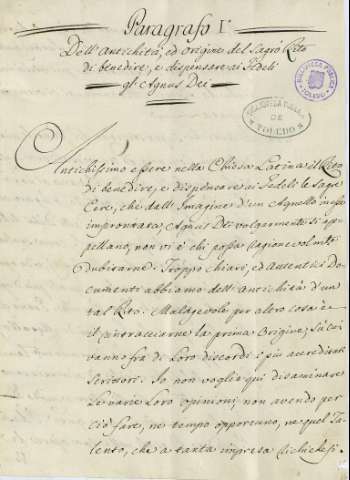 Paragrafo I.º
Dell'Antichità, ed Origine del Sagro Rito
di benedire, e dispensare ai Fedeli
gl'Agnus Dei
BIBLIOTECA PUBLICA
TOLEDO
DE
TOLEDO
Antichissimo essere nella Chiesa Latina il Rito
di benedire, e dispensare ai Fedeli le Sagre
Cere, che dall'Imagine d'un Agnello in esse
improntata, Agnus Dei volgarmente si ap-
pellano, non vi è chi possa ragionevolmte
dubitarne. Troppo chiari, ed Autentici Do-
cumenti abbiamo dell'Antichità d'un
tal Rito. Malagevole per altro cosa è
il rintracciarne la prima Origine, su cui
vanno fra di Loro discordi i più accreditati
Scrittori. Io non voglio qui disaminare
Le varie Loro opinioni, non avendo per
ciò fare, ne tempo opportuno, ne quel Ta-
lento, che a tanta impresa richiedesi.